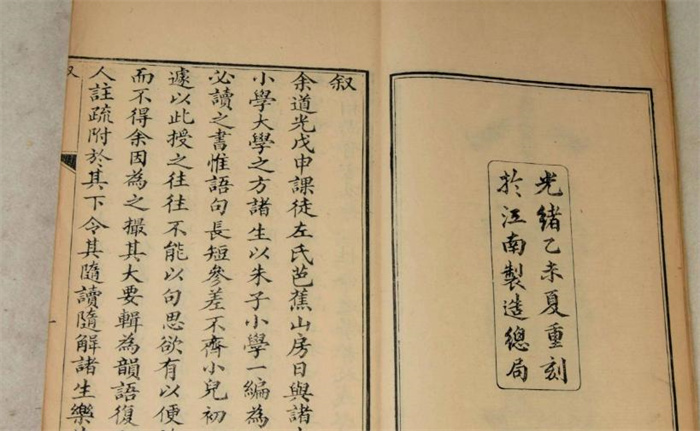 光緒乙未夏重刻
於江南製造總局
叙
余道光戊申課徒左氏芭蕉山房日與諸
小學大學之方諸生以朱子小學一編為
必讀之書惟語句長短參差不齊小兒初
遽以此授之往往不能以句思欲有以便
而不得余因為之撮其大要輯為韻語復
人註疏附於其下令其隨讀隨解諸生樂